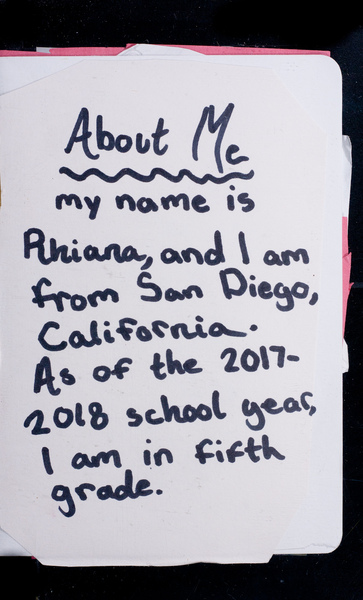 About Me
my name is
Rhiana, and I am
from San Diego,
California.
As of the 2017-
2018 school year,
I am in fifth
grade.